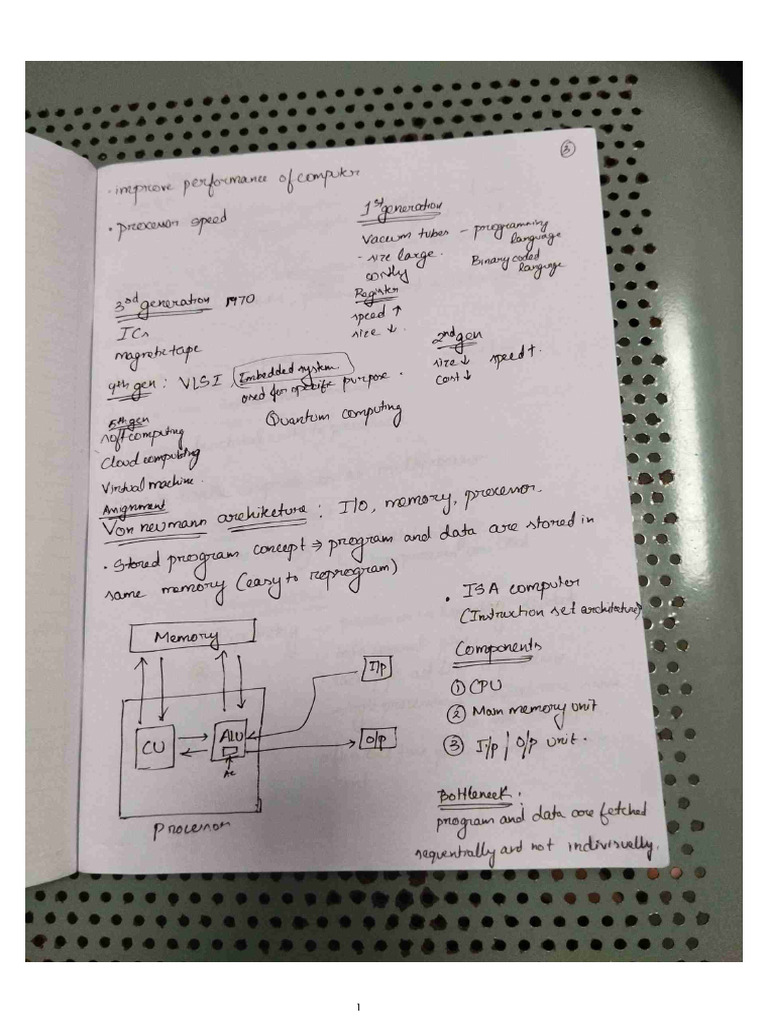 3
• improve performance of computer
• processor speed
1st generation
Vacuum tubes - programming language
- size large.
costly
Binary coded language
Register
speed ↑
size ↓.
2nd gen
size ↓ speed ↑.
cost ↓
3rd generation 1970
ICs
magnetic tape
4th gen : VLSI Embedded system
used for specific purpose.
5th gen
soft computing
Quantum computing
Cloud computing
Virtual machine.
Assignment
Von neumann architecture : I/O, memory, processor.
• Stored program concept ⇒ program and data are stored in
same memory (easy to reprogram)
• ISA computer
(Instruction set architecture)
Components
① CPU
② Main memory unit
③ I/p / O/p unit.
Memory
I/p
CU
ALU
O/p
AC
Processor
Bottleneck :
program and data are fetched
sequentrially and not indivisually.
1